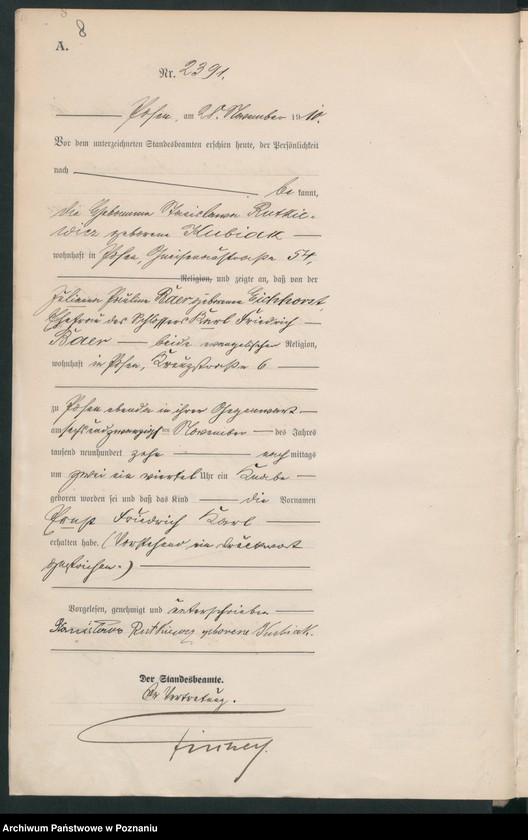 8
A.
Nr. 2391.
Posen, am 28. November 1910.
Vor dem unterzeichneten Standesbeamten erschien heute, der Persönlichkeit
nach be kannt,
die Hebamme Stanislawa Rutkie-
wicz geborene Kubiak
wohnhaft in Posen, Gneisenaustraße 54,
Religion, und zeigte an, daß von der
Juliana Pauline Baer geborene Eichhorst,
Ehefrau des Schlossers Karl Friedrich
Baer beide evangelischer Religion,
wohnhaft in Posen, Kreuzstraße 6
zu Posen ebenda in ihrer Gegenwart
am sechsundzwanzigsten November des Jahres
tausend neunhundert zehn nachmittags
um zwei ein viertel Uhr ein Knabe
geboren worden sei und daß das Kind die Vornamen
Ernst Friedrich Karl
erhalten habe. (Vorstehend ein Druckwort
gestrichen.)
Vorgelesen, genehmigt und unterschrieben
Stanislawa Rutkiewicz geborene Kubiak.
Der Standesbeamte.
In Vertretung.
Archiwum Państwowe w Poznaniu